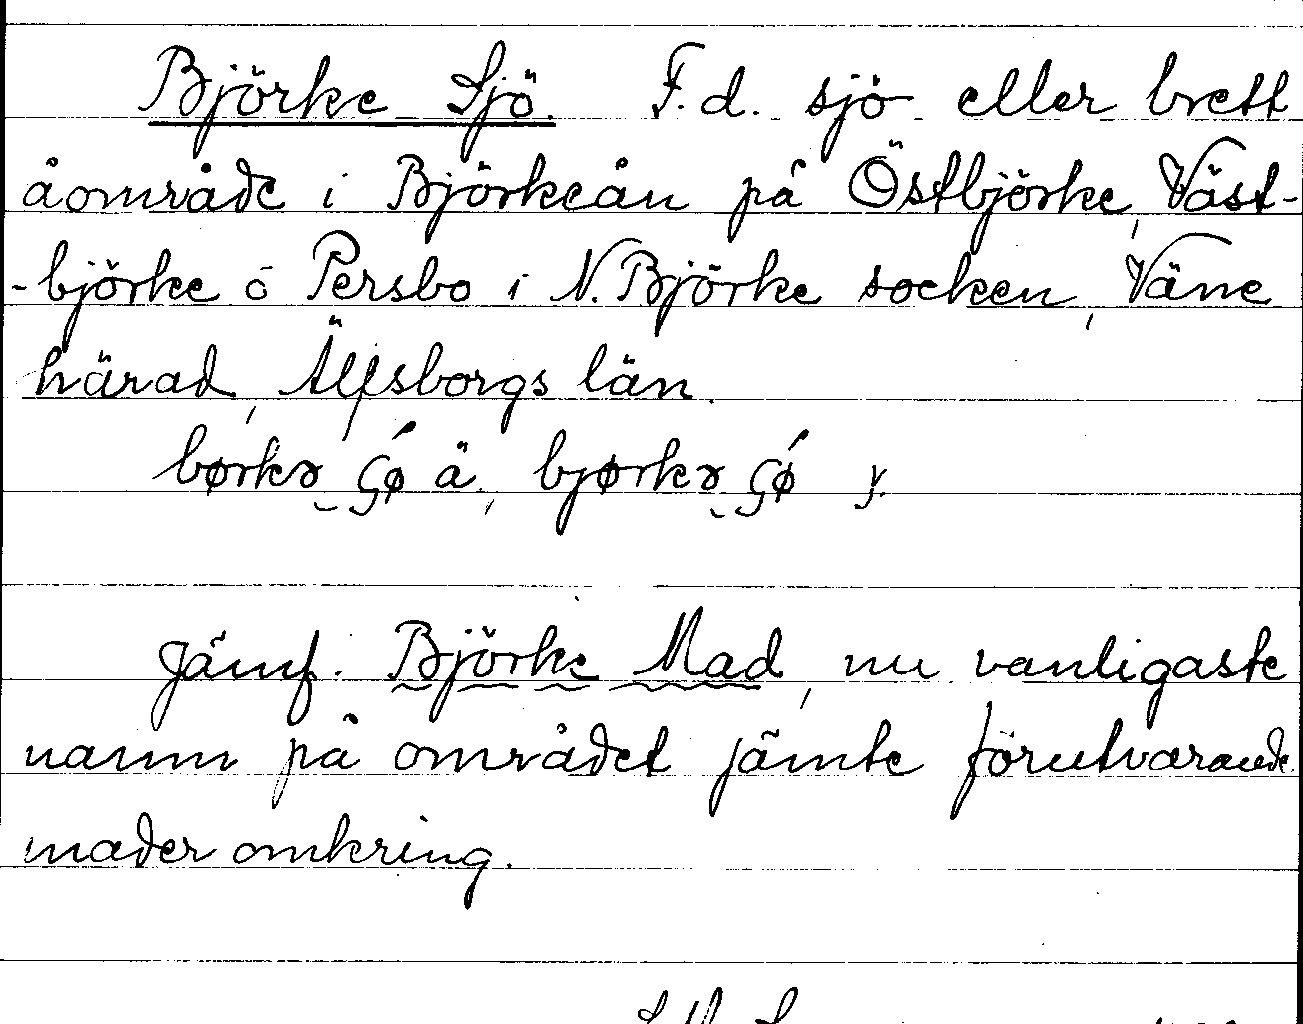 Björke Sjö. F.d. sjö eller brett
åområde i Björkeån på Östbjörke, Väst-
-björke o Persbo i N. Björke socken, Väne
härad, Älfsborgs län.
børkə ɕǿ ä., bjørkə ɕǿ y.
Jämf. Björke Mad, nu vanligaste
namn på området jämte förutvarande
mader omkring.